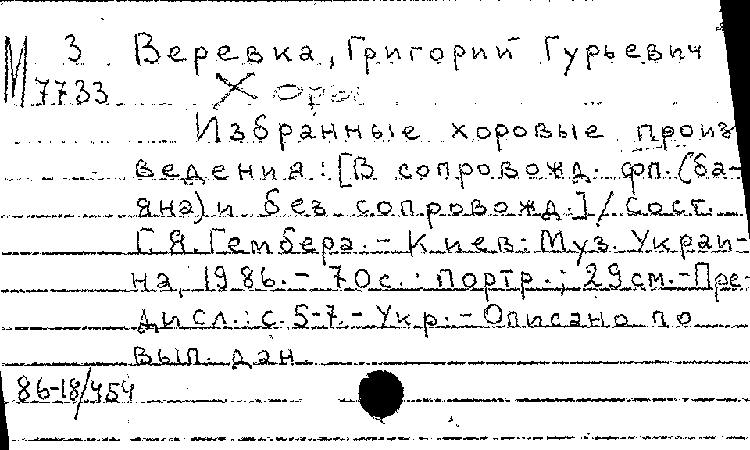 М 3 Веревка, Григорий Гурьевич
7733 Хоры
Избранные хоровые произ-
ведения: [В сопровожд. фп. (ба-
яна) и без сопровожд.] / Сост.
Г. Я. Гембера. - Киев: Муз. Украи-
на, 1986. - 70 с.: портр.; 29 см. - Пре-
дисл.: с. 5-7. - Укр. - Описано по
вып. дан.
86-18/454